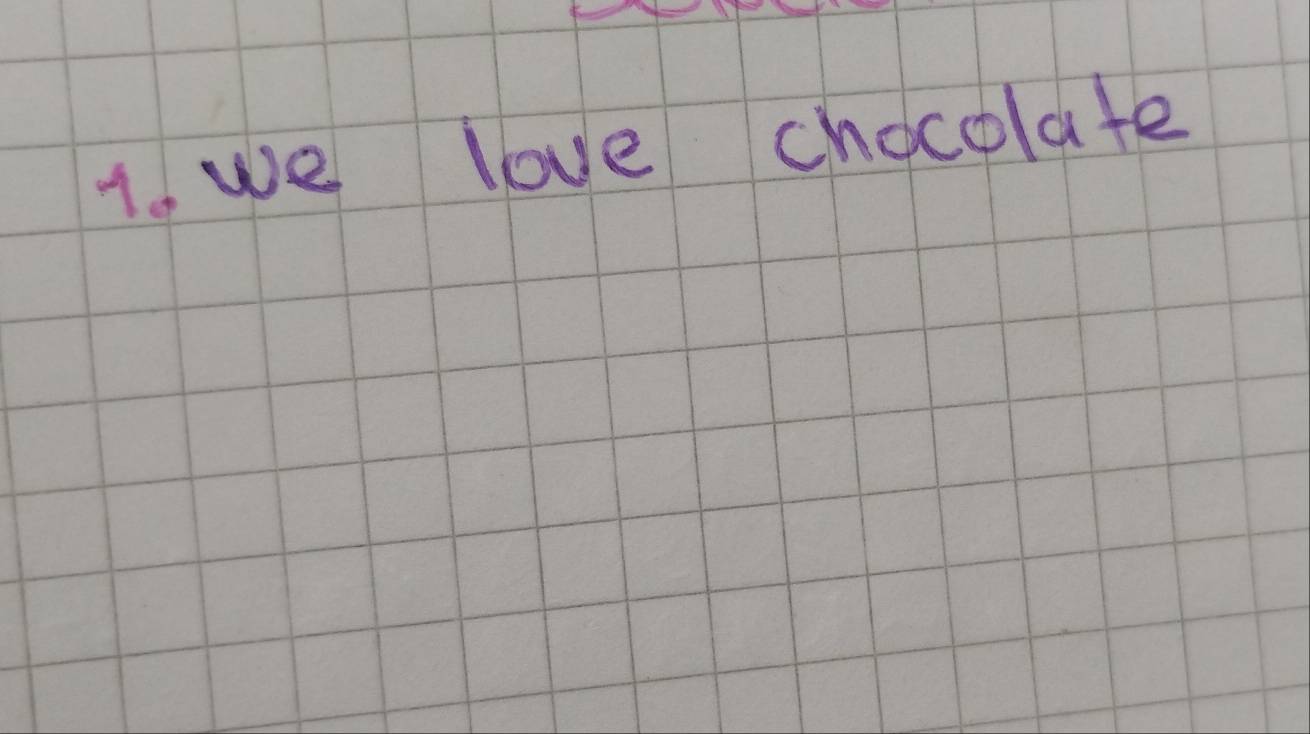 1. we love chocolate